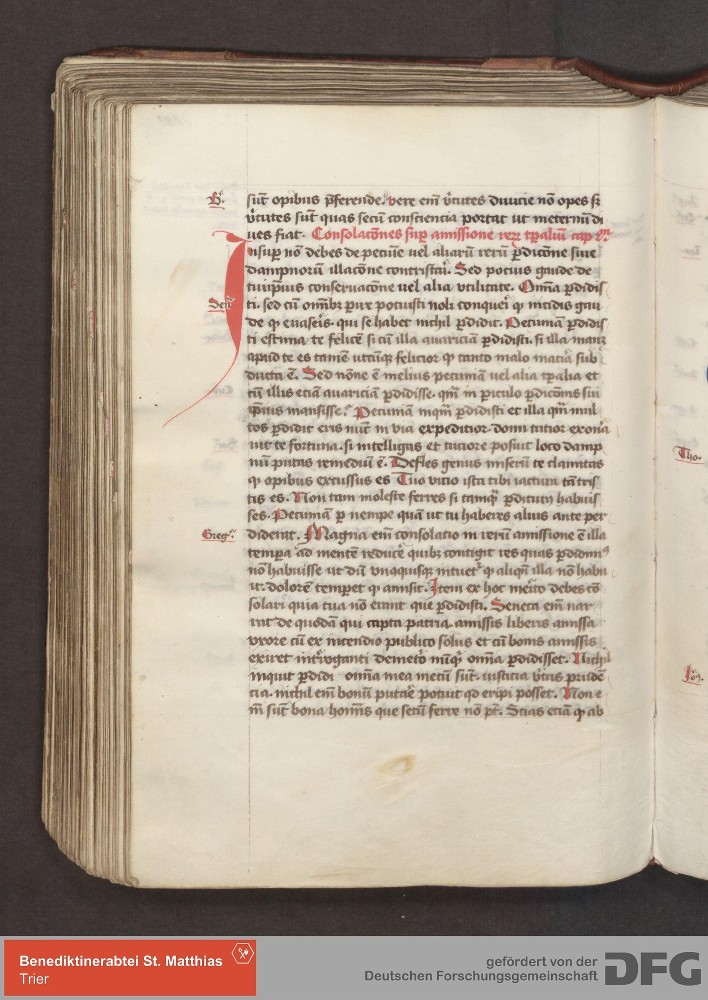 B.
sūt opibus p̄ferende. vere em̄ v̓tutes diuicie nō opes s̄
v̓tutes sūt quas secū consciencia portat ut ineternū di
ues fiat. Consolacōnes sup̱ amissione rerꝝ tp̄aliū cap
Insup̱ nō debes de pecūie vel aliarū rerū p̱dicōne siue
dampnorum illacōne contristari. Sed pocius gaude de
tui ipsius conseruacōne uel alia vtilitate. Om̄ia p̱didis
Sen̄
ti. sed cū om̄ibꝫ p̱ire potuisti noli conqueri qꝫ incidis gau
de qꝫ euaseris. qui se habet nichil p̱didit. Pecuniā p̱didis
ti estima te felicē si cū illa auariciā p̱didisti. si illa manꝫ
apud te es tamē utcūqꝫ felicior qꝫ tanto malo matia sub
ducta ē. Sed nōne ē melius pecuniā uel alia tp̄alia et
cū illis eciā auariciā p̱didisse. qm̄ in p̱iculo p̱dicōnis sui
ip̄ius mansisse. Pecuniā inqm̄ p̱didisti et illa qm̄ mul
tos p̱didit eris nūc in via expedicior. domi tucior exon̓a
uit te fortuna. si intelligas et tuciore posuit loco damp
nū putas remediū ē. Defles gemis miserū te clamitas
qꝫ opibus excussus es Tuo vicio ista tibi iactura tā tris
tis es. Non tam moleste ferres si tamqꝫ p̱ditur habuis
ses. Pecuniam p̱ nempe quā ut tu haberes alius ante per
Greg.
diderat. Magna em̄ consolatio in rerū amissione ē illa
tempora ad mentē reducē quibꝫ contigit res quas p̱didimꝰ
nō habuisse ut dū vnaquisqꝫ intuetʳ qꝫ aliqn̄ illa nō habu
it. dolorē temperet qꝫ amisit. Item ex hoc merito debes cō
solari quia tua nō erant que p̱didisti. Seneca em̄ nar
rat de quodā qui capta patria. amissis liberis amissa
vxore cū ex incendio publico solus et cū bonis amissis
exiret int̓roganti demetrio nūqꝫ om̄ia p̱didisset. Nichil
inquit p̱didi om̄ia mea mecū sūt. iusticia v̓tus prudē
cia. nichil em̄ bonū putare potuit qd eripi posset. Non e
m̄ sūt bona hom̄is que secū ferre nō pt̄. Scias eciā qꝫ ab
Tho.
Benediktinerabtei St. Matthias
Trier
gefördert von der
Deutschen Forschungsgemeinschaft
DFG